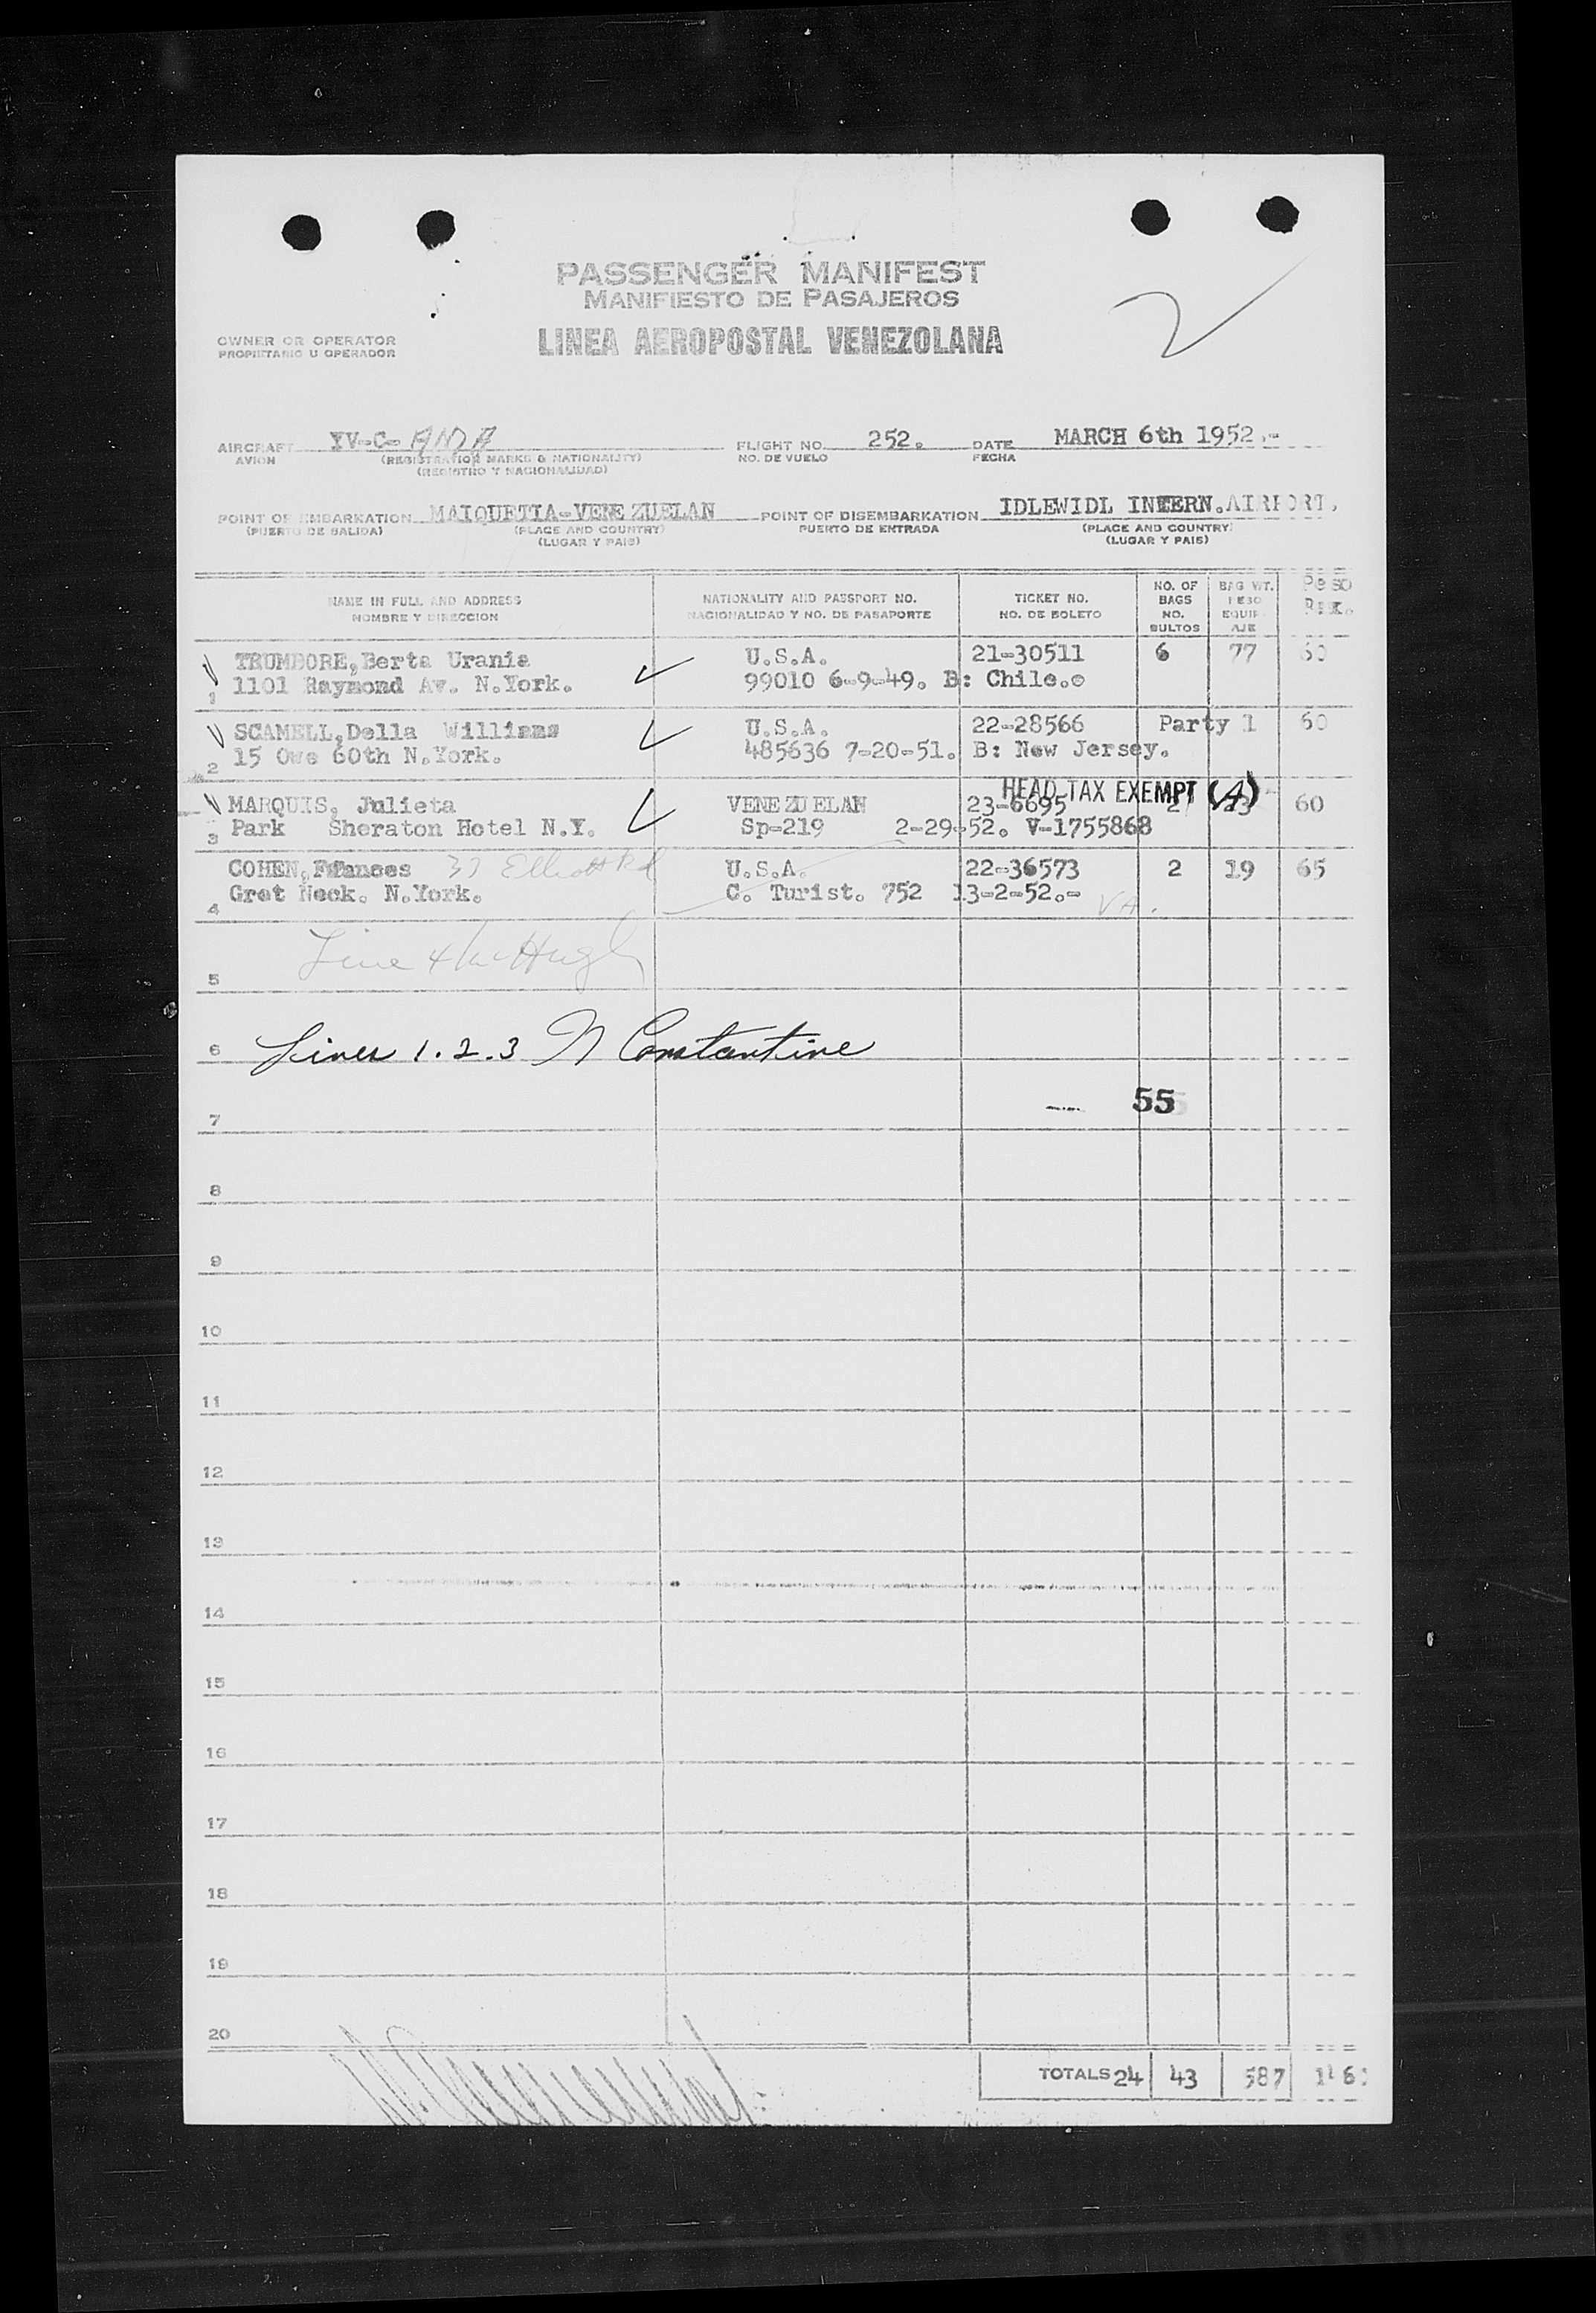 2
PASSENGER MANIFEST
MANIFIESTO DE PASAJEROS
OWNER OR OPERATOR
PROPIETARIO U OPERADOR
LINEA AEROPOSTAL VENEZOLANA
AIRCRAFT YV-C-ANA FLIGHT NO. 252. DATE MARCH 6th 1952.-
AVION (REGISTRATION MARKS & NATIONALITY) NO. DE VUELO FECHA
(REGISTRO Y NACIONALIDAD)
POINT OF EMBARKATION MAIQUETIA-VENEZUELAN POINT OF DISEMBARKATION IDLEWIDL INTERN.AIRPORT.
(PUERTO DE SALIDA) (PLACE AND COUNTRY) PUERTO DE ENTRADA (PLACE AND COUNTRY)
(LUGAR Y PAIS) (LUGAR Y PAIS)
NAME IN FULL AND ADDRESS NATIONALITY AND PASSPORT NO. TICKET NO. NO. OF BAGS BAG WT. Peso
NOMBRE Y DIRECCION NACIONALIDAD Y NO. DE PASAPORTE NO. DE BOLETO NO. BULTOS PESO EQUIP-AJE
TRUMBORE,Berta Urania U.S.A. 21-30511 6 77 60
1 1101 Raymond Av. N.York. 99010 6-9-49. B: Chile.
SCAMELL,Della Williams U.S.A. 22-28566 Party 1 60
2 15 Owe 60th N.York. 485636 7-20-51. B: New Jersey.
HEAD TAX EXEMPT (A)
MARQUIS, Julieta VENEZUELAN 23-6695 2 23 60
3 Park Sheraton Hotel N.Y. Sp-219 2-29-52. V-1755868
COHEN,Frances 37 Elliott Rd U.S.A. 22-36573 2 19 65
4 Gret Neck. N.York. C. Turist. 752 13-2-52.-
Line 4 McHugh
5
6 Lines 1.2.3 N Constantine
55
7
8
9
10
11
12
13
14
15
16
17
18
19
20
TOTALS 24 43 587